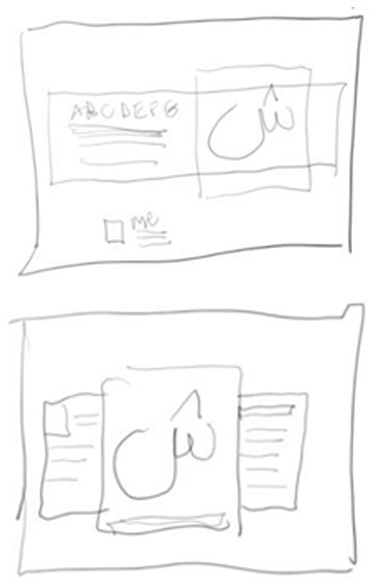 ABCDEFG
ش
me
ش